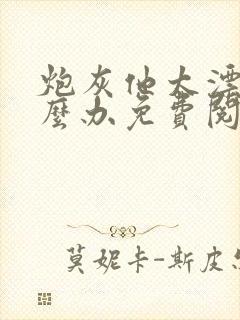 炮灰他太漂
麼办免費閱
莫妮卡-斯皮